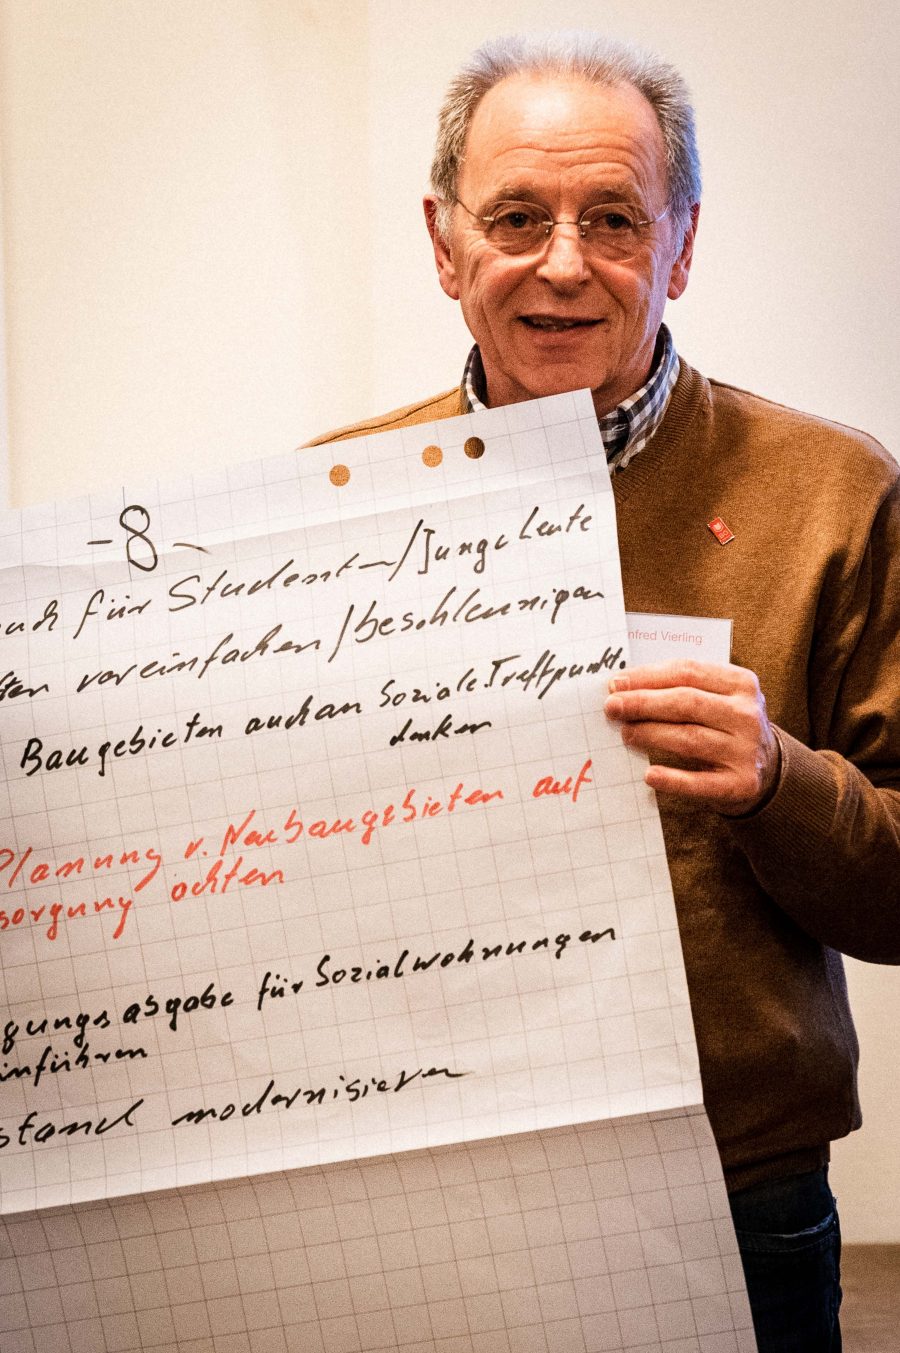 -8-
auch für Studenten/Junge Leute
vereinfachen/beschleunigen
Baugebieten auch an Soziale Treffpunkte
denken
Planung v. Neubaugebieten auf
sorgung achten
gungsabgabe für Sozialwohnungen
einführen
stand modernisieren
nfred Vierling